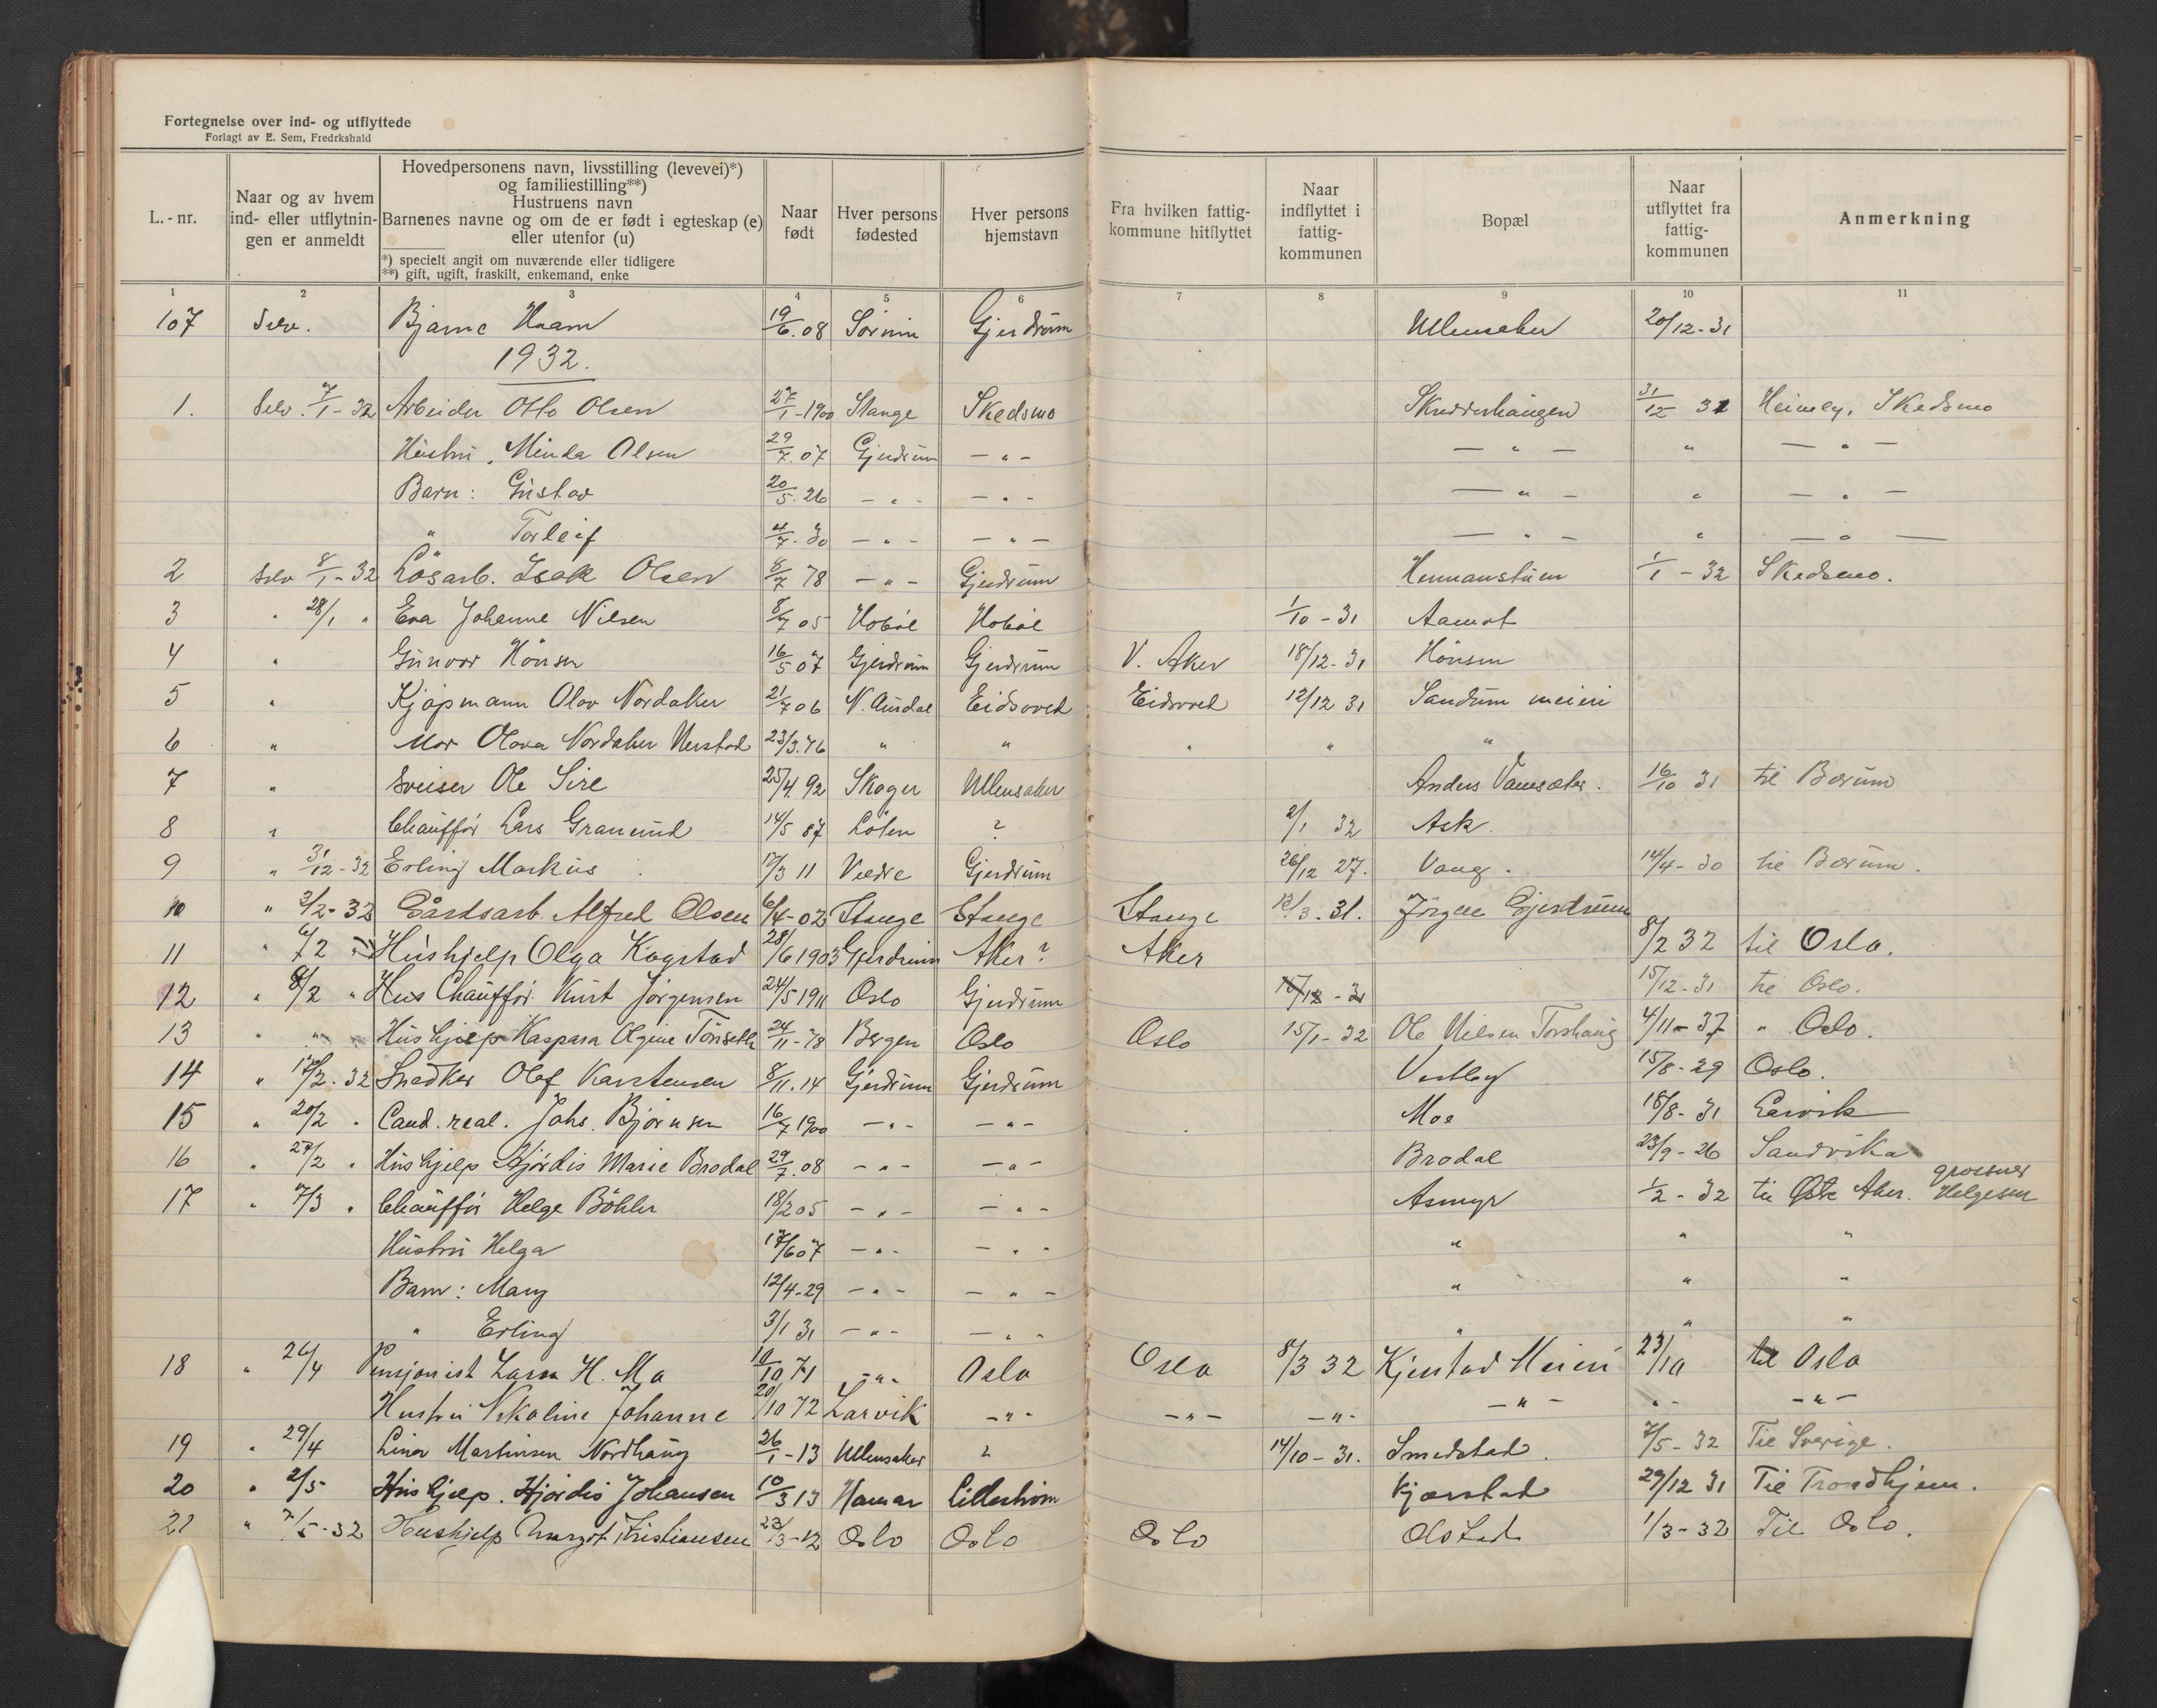 Fortegnelse over ind- og utflyttede
Forlagt av E. Sem, Fredrkshald
L.-nr.
Naar og av hvem ind- eller utflytnin- gen er anmeldt
Hovedpersonens navn, livsstilling (levevei)*)
og familiestilling**)
Hustruens navn
Barnenes navne og om de er født i egteskap (e)
eller utenfor (u)
*) specielt angit om nuværende eller tidligere
**) gift, ugift, fraskilt, enkemand, enke
Naar født
Hver persons fødested
Hver persons hjemstavn
Fra hvilken fattig- kommune hitflyttet
Naar indflyttet i fattig- kommunen
Bopæl
Naar utflyttet fra fattig- kommunen
Anmerkning
1 2 3 4 5 6 7 8 9 10 11
107 Selv. Bjarne Haam 19/6.08 Sørum Gjerdrum Ullensaker 20/12-31
1932.
1. Selv. 7/1-32 Arbeider Otto Olsen 27/1-1900 Stange Skedsmo 31/12 31 Heimly, Skedsmo
Hustru, Minda Olsen 29/7.07 Gjerdrum -"- -"- " -"-
Barn: Gustav 20/5.26 -"- -"- -"- " -"-
" Torleif 4/7.30 -"- -"- -"- " -"-
2 Selv 8/1-32 Løsarb. Isak Olsen 8/7 78 -"- Gjerdrum Hermanstuen 1/1-32 Skedsmo.
3 " 28/1 " Eva Johanne Nilsen 8/7 05 Hobøl Hobøl 1/10-31 Aamot
4 " Gunvor Hønsen 16/5 07 Gjerdrum Gjerdrum V. Aker 18/12-31 Hønsen
5 " Kjøpmann Olav Nordaker 21/7 06 N. Aurdal Eidsvold Eidsvold 12/12 31 Sandum meieri
6 " Mor Olava Nordaker Nerstad 23/3.76 " " " " "
7 " Sveiser Ole Sire 25/4 92 Skoger Ullensaker Anders 16/10 31 til Bærum
8 " Chauffør Lars Granund 14/5 87 Løten ? 2/1 32 Ask.
9 " 31/12-32 Erling Markus 17/3 11 Gjerdrum 26/12 27. Vang. 14/4-30 til Bærum.
10 " 2/2-32 Gårdsarb. Alfred Olsen 6/4-02 Stange Stange Stange 12/3.31. Jørgen Gjerdrum
11 " 6/2 " Hushjelp Olga Kogstad 28/6 1903 Gjerdrum Aker? Aker 8/2 32 til Oslo.
12 " 8/2 " Hus Chauffør Kurt Jørgensen 24/5 1911 Oslo Gjerdrum 15/12-31 15/12-31 til Oslo.
13 " " " Hushjelp Kaspara Olgine Tønseth 24/11-78 Bergen Oslo Oslo 15/1-32 Ole Nilsen Torshaug 4/11-37 " Oslo.
14 " 17/2.32 Snedker Olaf Karstensen 8/11.14 Gjerdrum Gjerdrum Vestby 15/8-29 Oslo.
15 " 20/2 " Cand. real. Johs. Bjørnsen 16/7 1900 -"- -"- Moe 18/8-31 Larvik
16 " 27/2 " Hushjelp Hjørdis Marie Brodal 29/7.08 -"- -"- Brodal 23/9-26 Sandvika
17 " 7/3 " Chauffør Helge Böhler 18/2 05 -"- -"- Asmyr 1/2-32 til Østre Aker. grosserer Helgesen
Hustru Helga 17/6 07 -"- -"- " " "
Barn: Mary 12/4-29 -"- -"- " " "
" Erling 3/1 31 -"- -"- " " "
18 " 26/4 Pensjonist Lars H. Mo 10/10 71 -"- Oslo Oslo 8/3 32 Kjerstad Meieri 23/10 til Oslo
Hustru Nikoline Johanne 20/10 72 Larvik -"- -"- -"- -"- "- -"-
19 " 29/4 Linea Martinsen Nordhaug 26/1-13 Ullensaker ? 14/10-31. Smedstad. 7/5-32 Til Sverige.
20 " 2/5 Hushjelp. Hjørdis Johansen 10/3 13 Hamar Lillestrøm Kjærstad 29/12 31 Til Trondhjem.
21 " 7/5-32 Hushjelp Margot Kristiansen 23/3-12 Oslo Oslo Oslo Olstad 1/3-32 Til Oslo.